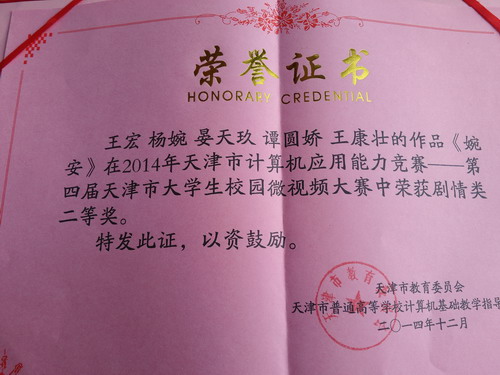 荣誉证书
HONORARY CREDENTIAL
王宏 杨婉 晏天玖 谭圆娇 王康壮的作品《婉
安》在2014年天津市计算机应用能力竞赛——第
四届天津市大学生校园微视频大赛中荣获剧情类
二等奖。
特发此证，以资鼓励。
天津市教育委员会
天津市普通高等学校计算机基础教学指导
二〇一四年十二月
天津市教育